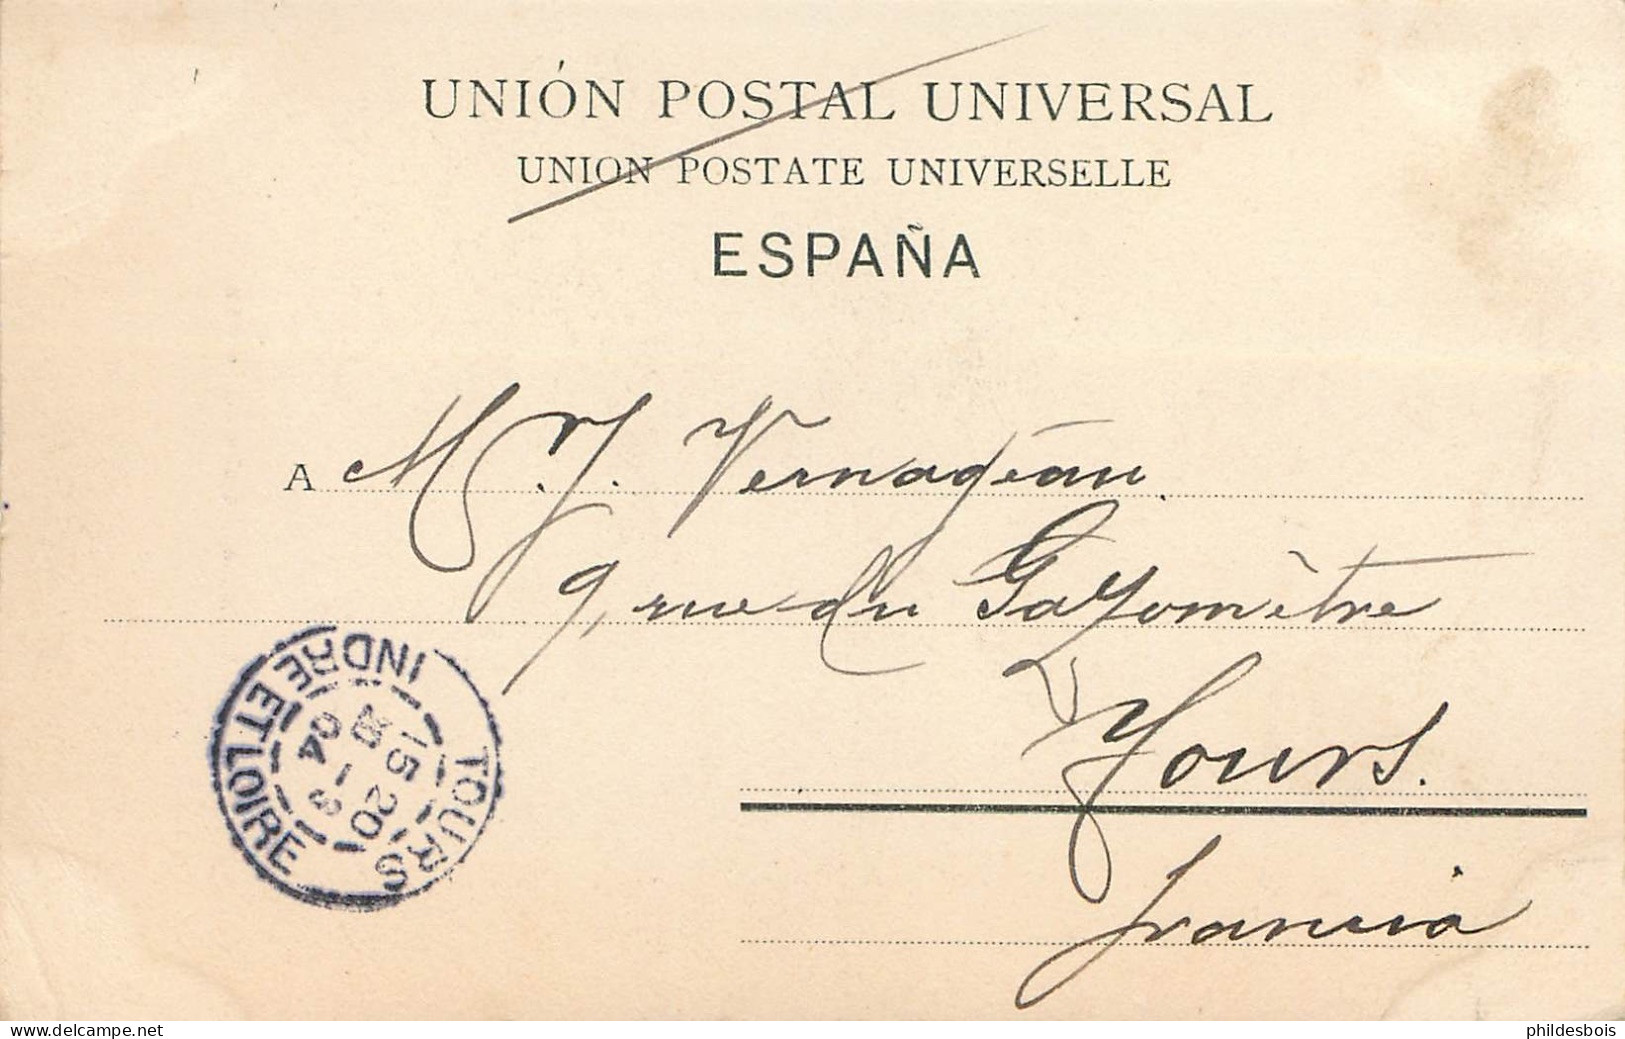 UNIÓN POSTAL UNIVERSAL
UNION POSTATE UNIVERSELLE
ESPAÑA
A M. J. Vernageau
9, rue du Gazomètre
Tours.
Francia
TOURS
INDRE ET LOIRE
15 20
-3
04
delcampe.net
phildesbois